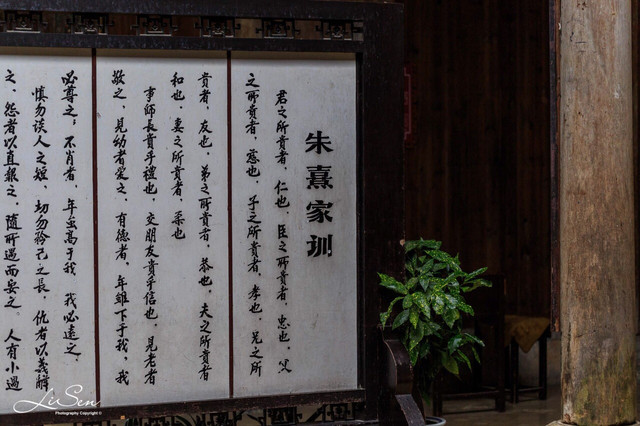 朱熹家训
君之所貴者，仁也，臣之所貴者，忠也，父
之所貴者，慈也，子之所貴者，孝也，兄之所
貴者，友也，弟之所貴者，恭也，夫之所貴者
和也，妻之所貴者，柔也
事師長貴乎禮也，交朋友貴乎信也，見老者
敬之，見幼者愛之，有德者，年雖下于我，我
必尊之，不肖者，年虽高于我，我必遠之，
慎勿谈人之短，切勿矜己之長，仇者以義解
之，怨者以直報之，随所遇而安之，人有小過
LiSen
Photography Copyright ©